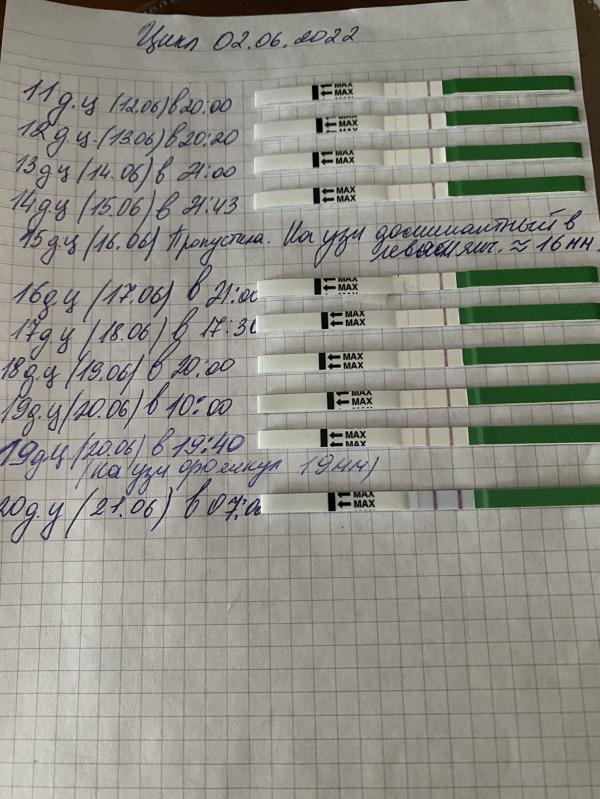 Цикл 02.06.2022
11 д.ц (12.06) в 20:00
MAX
MAX
12 д.ц. (13.06) в 20:20
MAX
MAX
13 д.ц (14.06) в 21:00
MAX
MAX
14 д.ц (15.06) в 21:43
MAX
MAX
15 д.ц (16.06) Пропустила. На узи доминантный в
≈ 16 мм.
16 д.ц (17.06) в 21:00
MAX
MAX
17 д.ц (18.06) в 17:30
MAX
MAX
18 д.ц (19.06) в 20:00
MAX
MAX
19 д.ц (20.06) в 10:00
MAX
MAX
19 д.ц (20.06) в 19:40
MAX
MAX
(на узи фолликул 19 мм)
20 д.ц (21.06) в 07:00
MAX
MAX